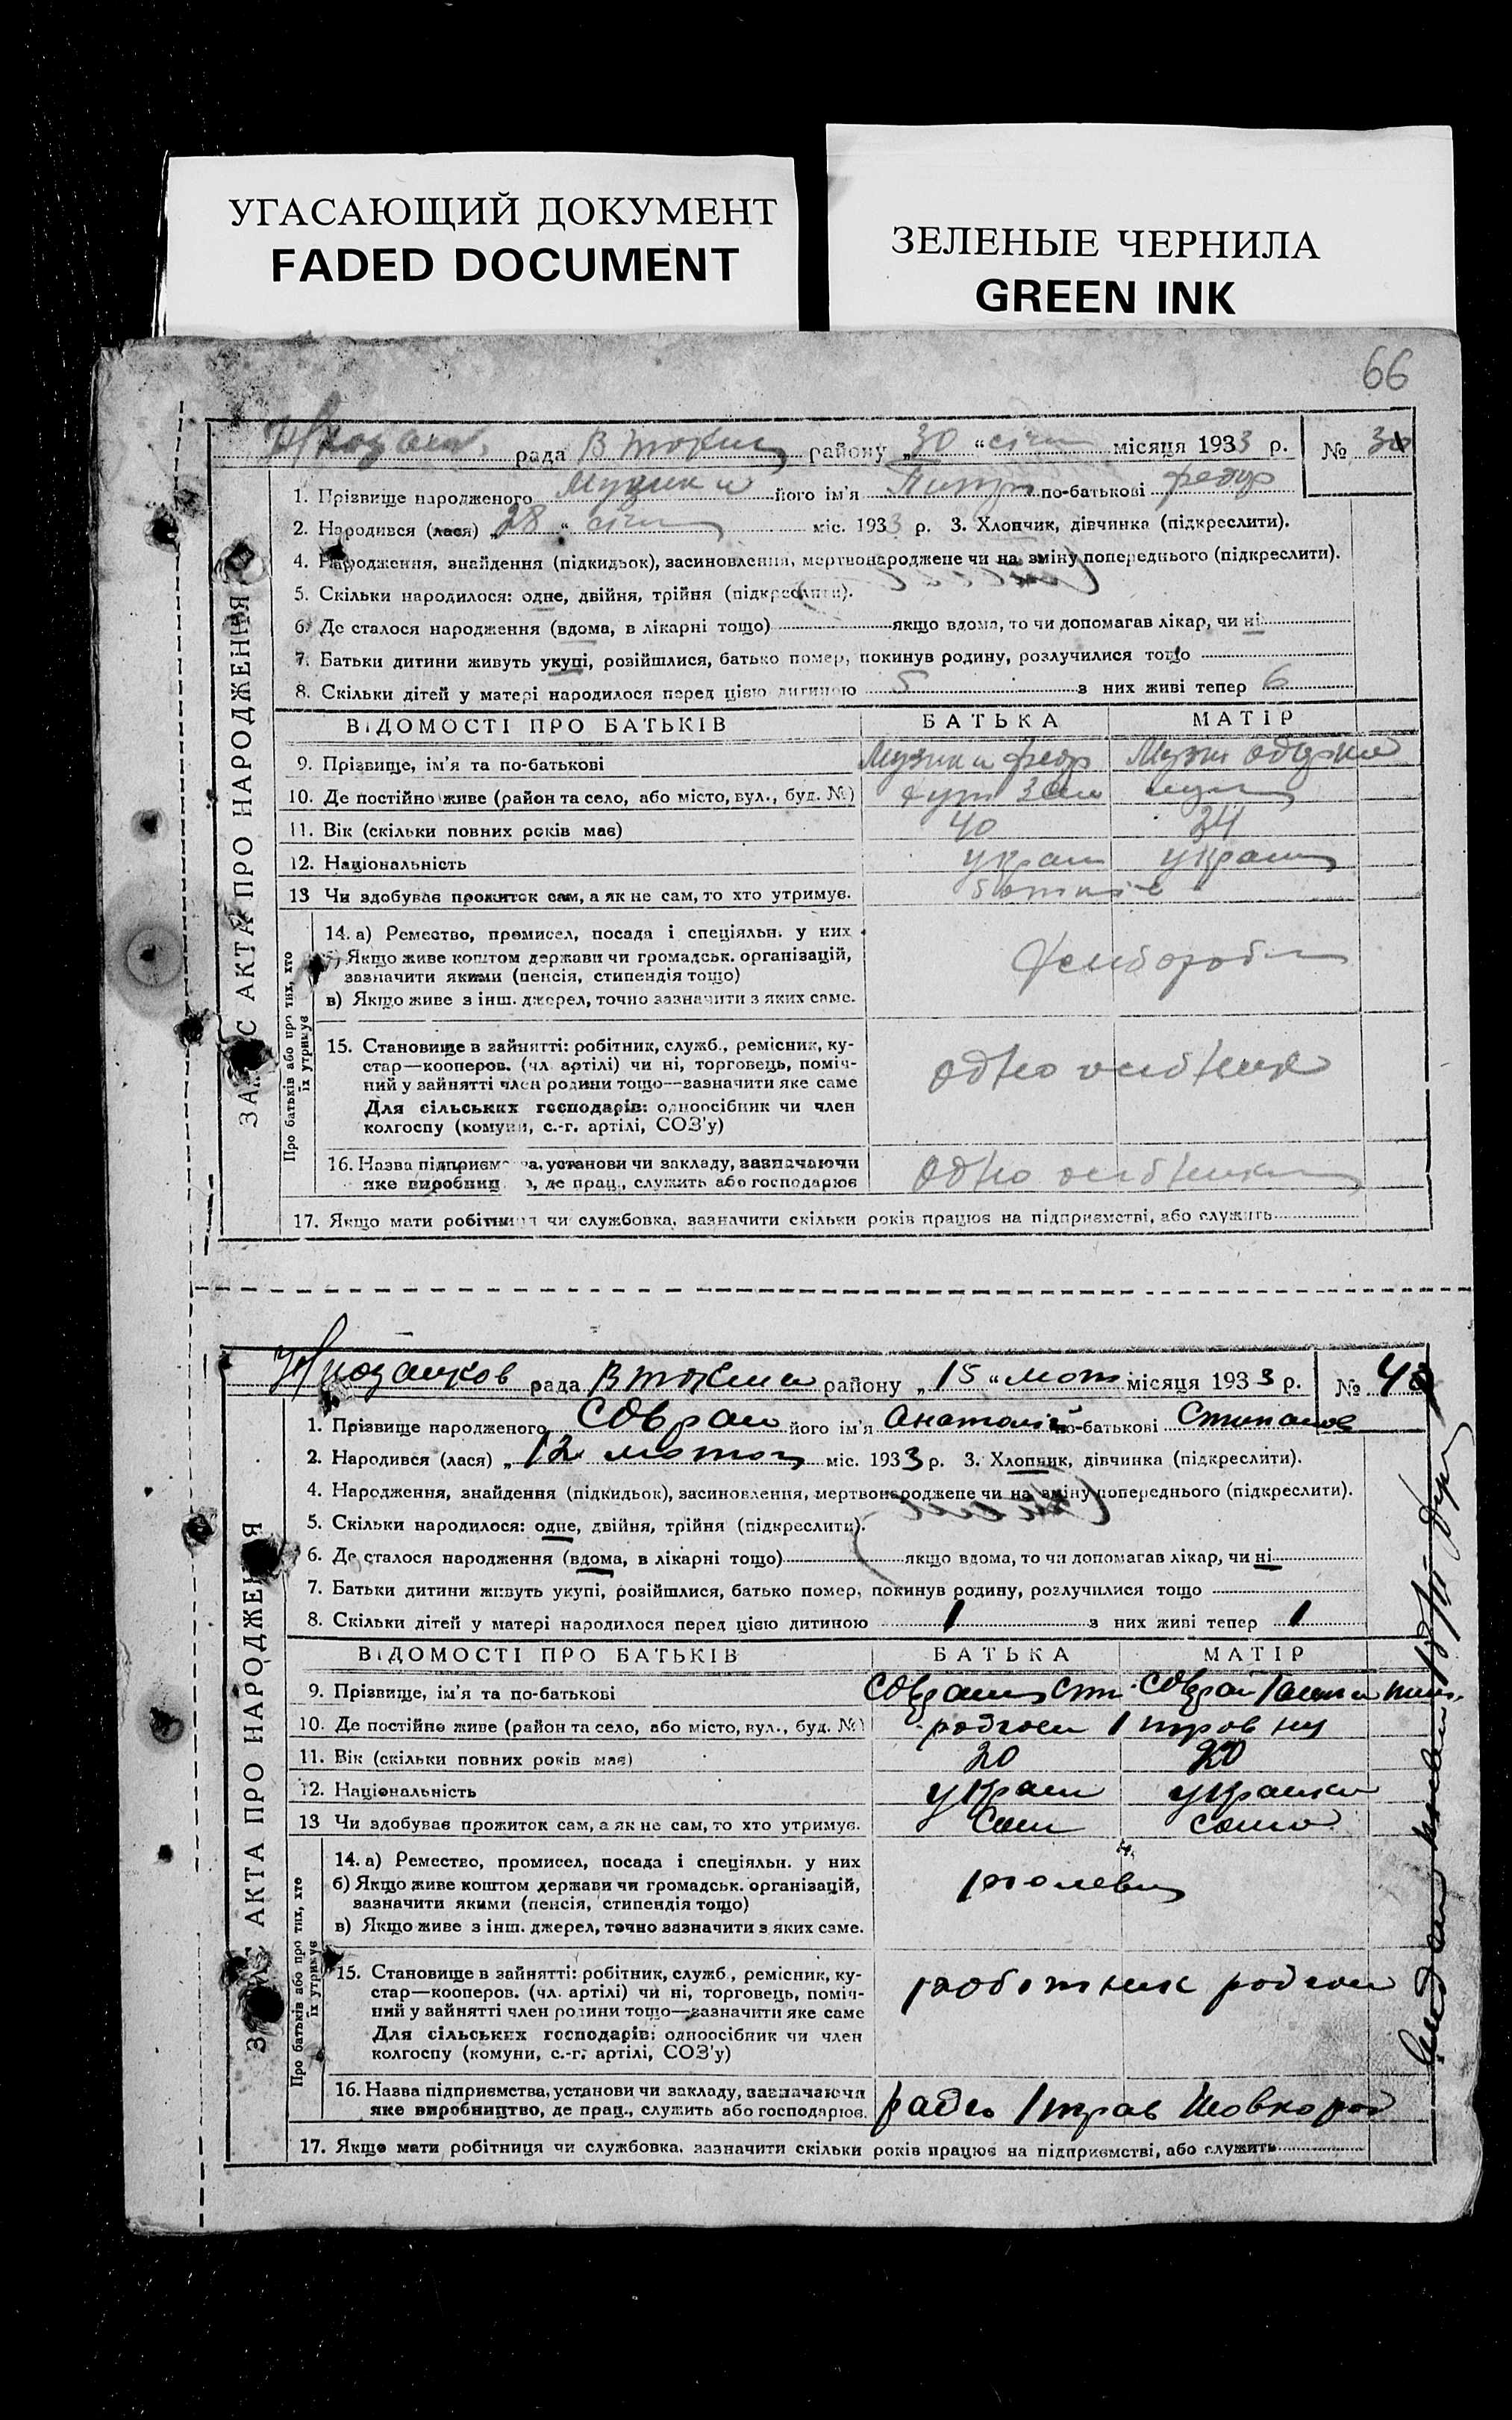 УГАСАЮЩИЙ ДОКУМЕНТ
FADED DOCUMENT
ЗЕЛЕНЫЕ ЧЕРНИЛА
GREEN INK
66
рада району „30 “ січн місяця 1933 р. №
1. Прізвище народженого Музика його ім'я по-батькові федор
2. Народився (лася) „28 “ січн міс. 1933 р. 3. Хлопчик, дівчинка (підкреслити).
4. Народження, знайдення (підкидьок), засиновлення, мертвонароджене чи на зміну попереднього (підкреслити).
5. Скільки народилося: одне, двійня, трійня (підкреслити).
6. Де сталося народження (вдома, в лікарні тощо) якщо вдома, то чи допомагав лікар, чи ні
7. Батьки дитини живуть укупі, розійшлися, батько помер, покинув родину, розлучилися тощо
8. Скільки дітей у матері народилося перед цією дитиною 5 з них живі тепер 6
ВІДОМОСТІ ПРО БАТЬКІВ БАТЬКА МАТІР
9. Прізвище, ім'я та по-батькові Музика федр
10. Де постійно живе (район та село, або місто, вул., буд. №)
11. Вік (скільки повних років має) 40 34
12. Національність украин украин
13 Чи здобуває прожиток сам, а як не сам, то хто утримує.
14. а) Ремество, промисел, посада і спеціяльн. у них
б) Якщо живе коштом держави чи громадськ. організацій,
зазначити якими (пенсія, стипендія тощо)
в) Якщо живе з інш. джерел, точно зазначити з яких саме.
15. Становище в зайнятті: робітник, служб., ремісник, ку-
стар—кооперов. (чл артілі) чи ні, торговець, поміч-
ний у зайнятті член родини тощо—зазначити яке саме
Для сільських господарів: одноосібник чи член
колгоспу (комуни, с.-г. артілі, СОЗ'у)
16. Назва підприємства, установи чи закладу, зазначаючи
яке виробництво, де прац., служить або господарює
17. Якщо мати робітниця чи службовка, зазначити скільки років працює на підприємстві, або служить
ЗАПИС АКТА ПРО НАРОДЖЕННЯ
Про батьків або про тих, хто
їх утримує
рада району „15 “ лют місяця 1933 р. №
1. Прізвище народженого його ім'я Анатолій по-батькові Степанов
2. Народився (лася) „12 лютог міс. 1933 р. 3. Хлопчик, дівчинка (підкреслити).
4. Народження, знайдення (підкидьок), засиновлення, мертвонароджене чи на зміну попереднього (підкреслити).
5. Скільки народилося: одне, двійня, трійня (підкреслити).
6. Де сталося народження (вдома, в лікарні тощо) якщо вдома, то чи допомагав лікар, чи ні
7. Батьки дитини живуть укупі, розійшлися, батько помер, покинув родину, розлучилися тощо
8. Скільки дітей у матері народилося перед цією дитиною 1 з них живі тепер 1
ВІДОМОСТІ ПРО БАТЬКІВ БАТЬКА МАТІР
9. Прізвище, ім'я та по-батькові
10. Де постійно живе (район та село, або місто, вул., буд. №)
11. Вік (скільки повних років має) 20 20
12. Національність украин украинка
13 Чи здобував прожиток сам, а як не сам, то хто утримує. Сам сама
14. а) Ремество, промисел, посада і спеціяльн. у них
б) Якщо живе коштом держави чи громадськ. організацій,
зазначити якими (пенсія, стипендія тощо)
в) Якщо живе з інш. джерел, точно зазначити з яких саме.
15. Становище в зайнятті: робітник, служб., ремісник, ку-
стар—кооперов. (чл. артілі) чи ні, торговець, поміч-
ний у зайнятті член родини тощо—зазначити яке саме
Для сільських господарів: одноосібник чи член
колгоспу (комуни, с.-г. артілі, СОЗ'у)
16. Назва підприємства, установи чи закладу, зазначаючи
яке виробництво, де прац., служить або господарює.
17. Якщо мати робітниця чи службовка, зазначити скільки років працює на підприємстві, або служить
ЗАПИС АКТА ПРО НАРОДЖЕННЯ
Про батьків або про тих, хто
їх утримує